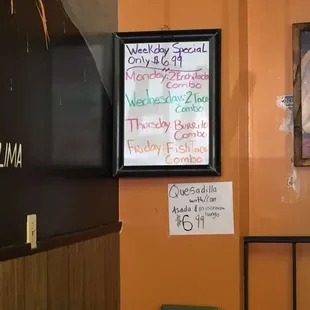 Weekday Special
Only $6.99
Monday: 2 Enchilada
Combo
Wednesday: 2 Taco
Combo
Thursday: Burrito
Combo
Friday: Fish taco
Combo
Quesadilla
with
Asada &
$6.99
LIMA